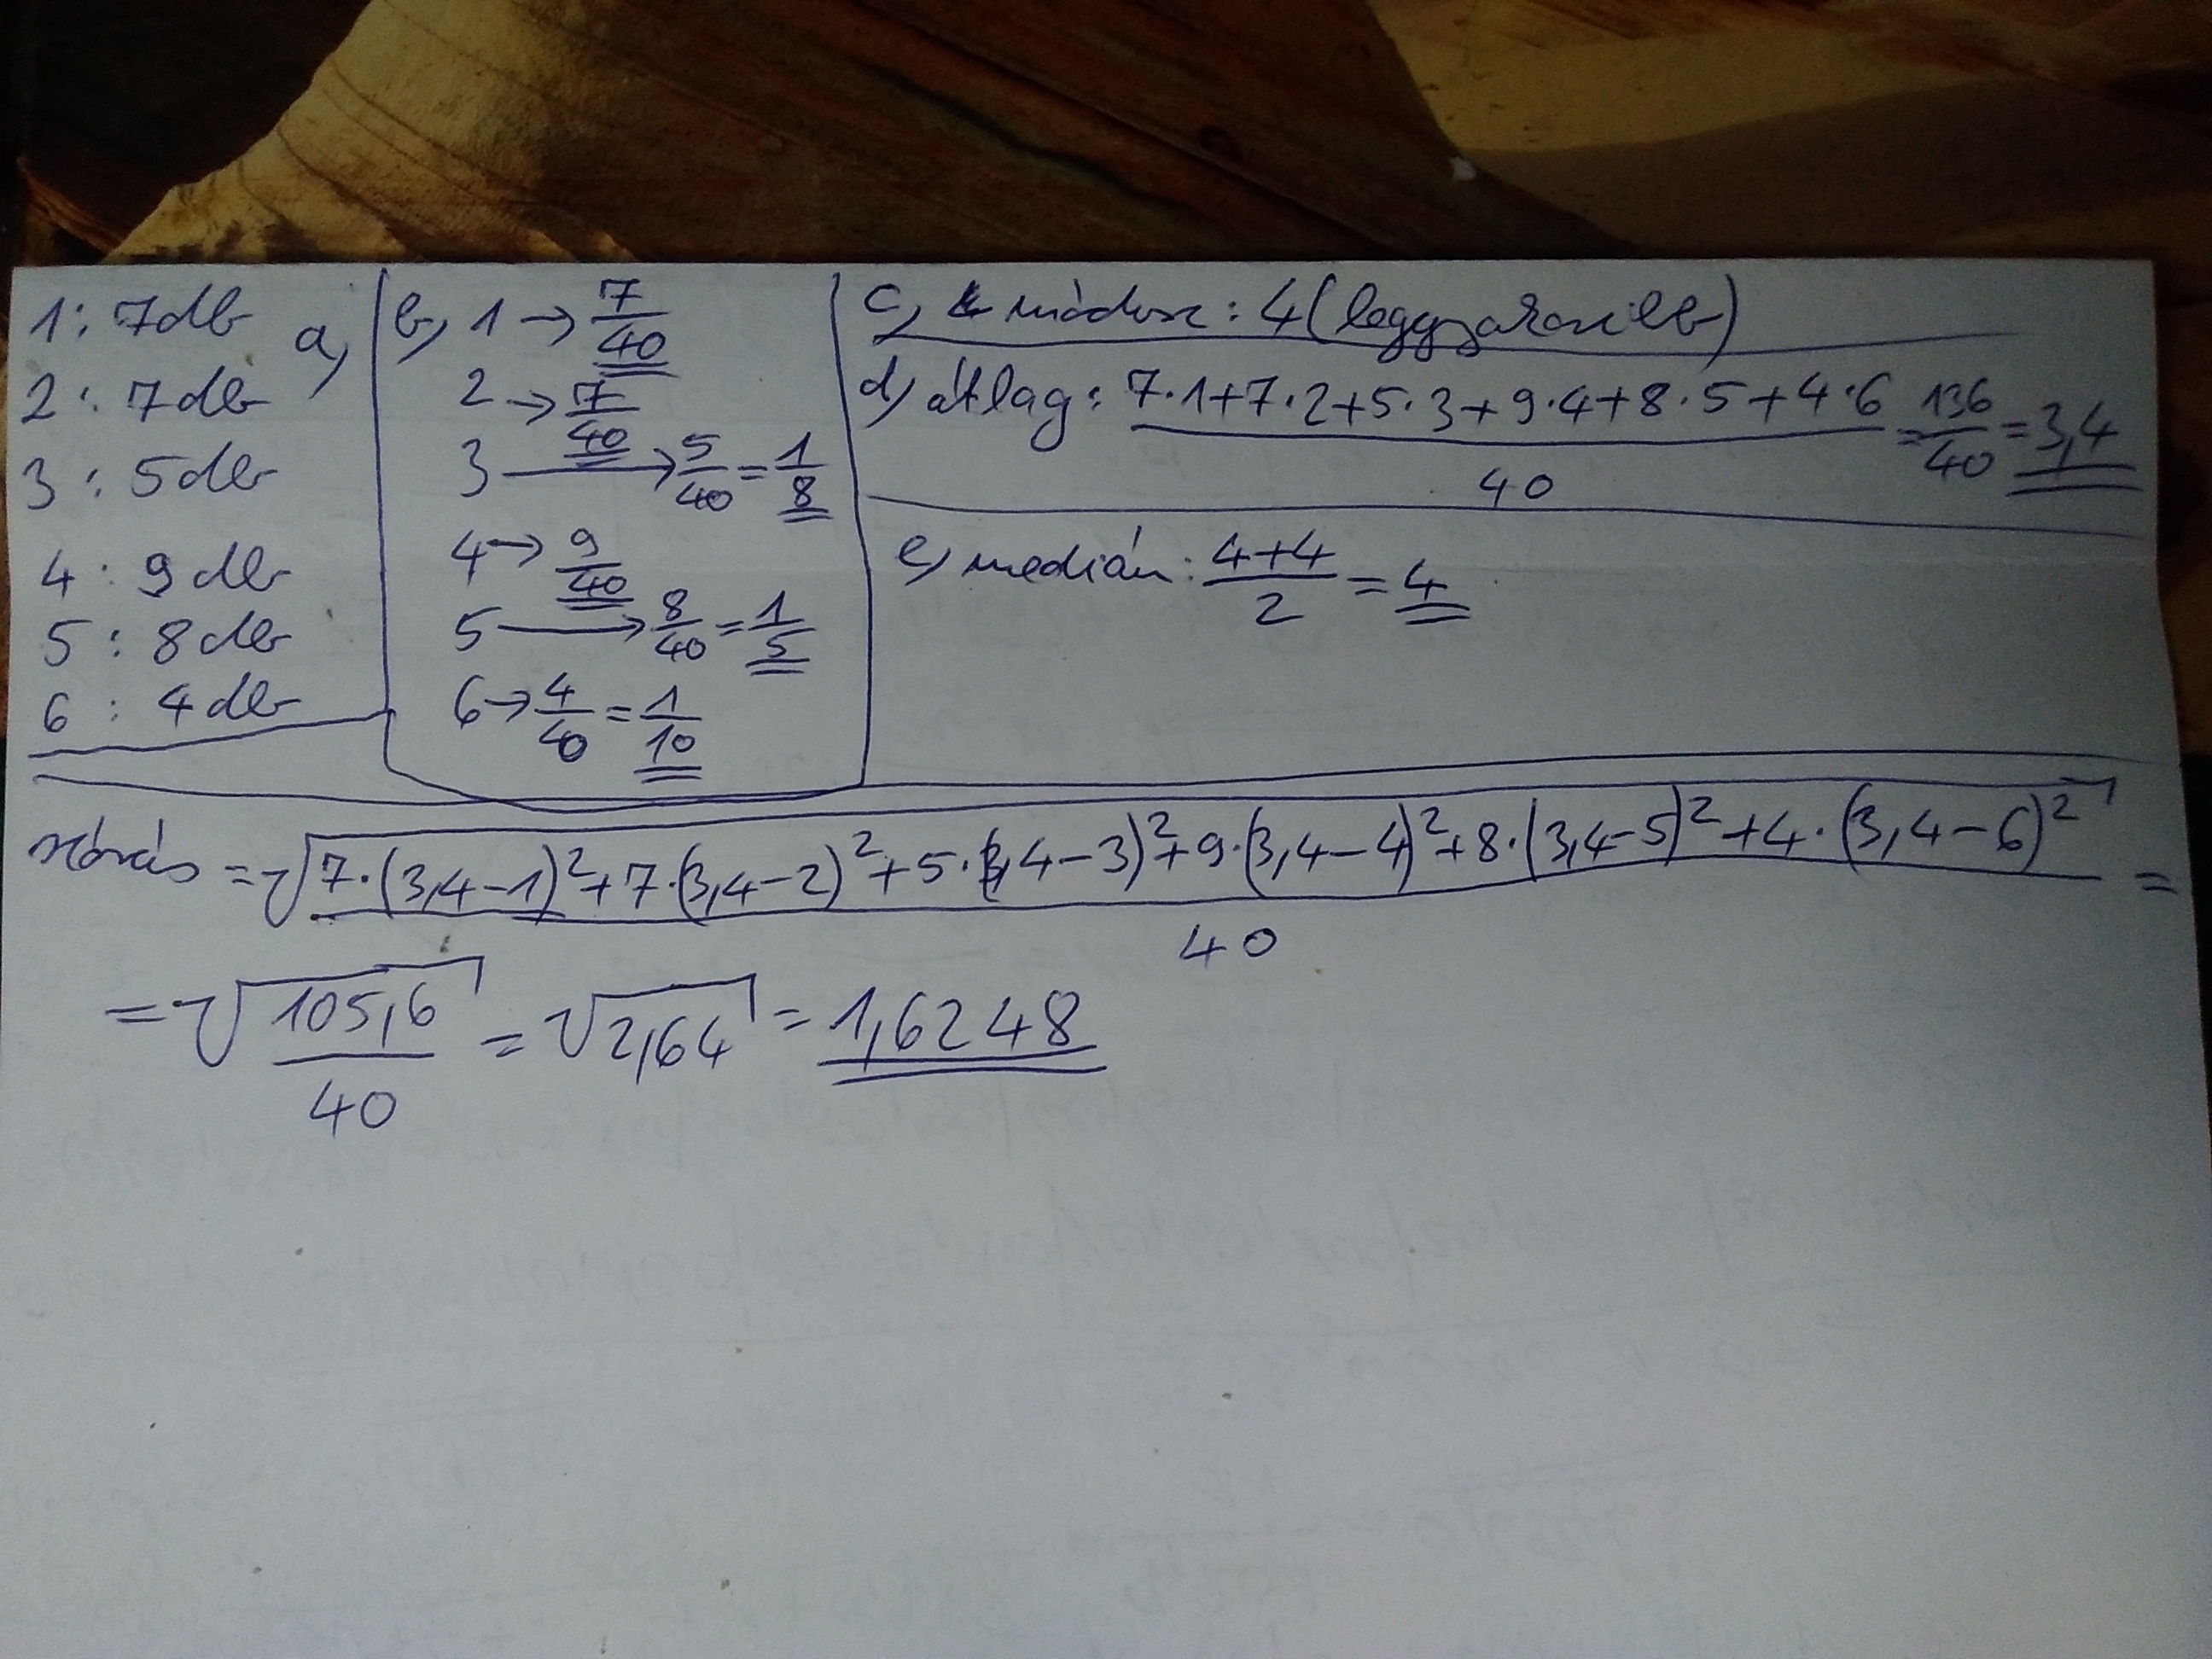 a,
1: 7db
2: 7db
3: 5db
4: 9db
5: 8db
6: 4db
b, 1 → 7/40
2 → 7/40
3 → 5/40 = 1/8
4 → 9/40
5 → 8/40 = 1/5
6 → 4/40 = 1/10
c, módusz: 4 (leggyakoribb)
d, átlag: (7·1+7·2+5·3+9·4+8·5+4·6)/40 = 136/40 = 3,4
e, medián: (4+4)/2 = 4
szórás = √((7·(3,4-1)²+7·(3,4-2)²+5·(3,4-3)²+9·(3,4-4)²+8·(3,4-5)²+4·(3,4-6)²)/40) =
= √(105,6/40) = √2,64 = 1,6248